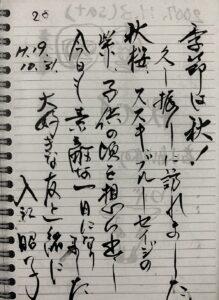 28
季節は秋!
久し振りに訪れました
秋桜、ススキ、ブルーセイジの
紫、子供の頃を想い出し
今日も素敵な一日になりました
大好きな友と一緒に
H.19.
10.31.
入記 昭子